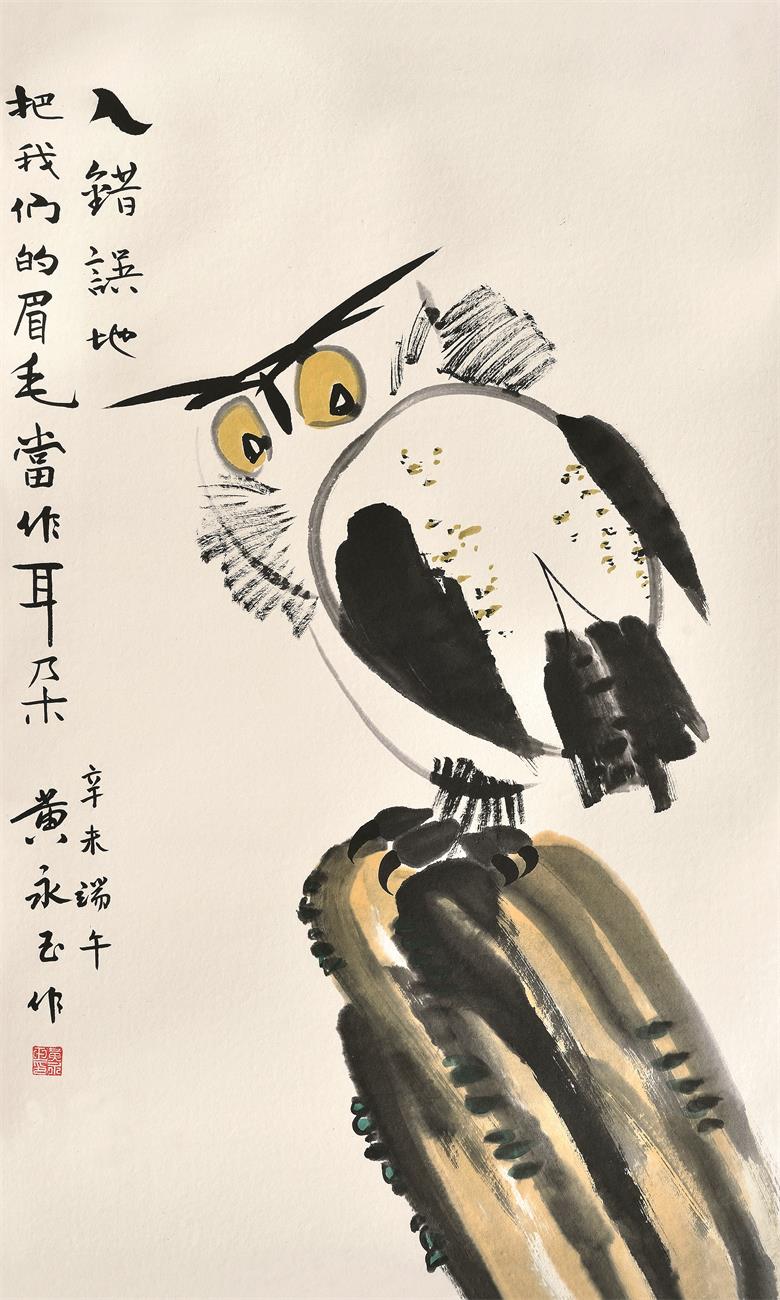 人錯誤地
把我們的眉毛當作耳朵
辛未端午
黄永玉作